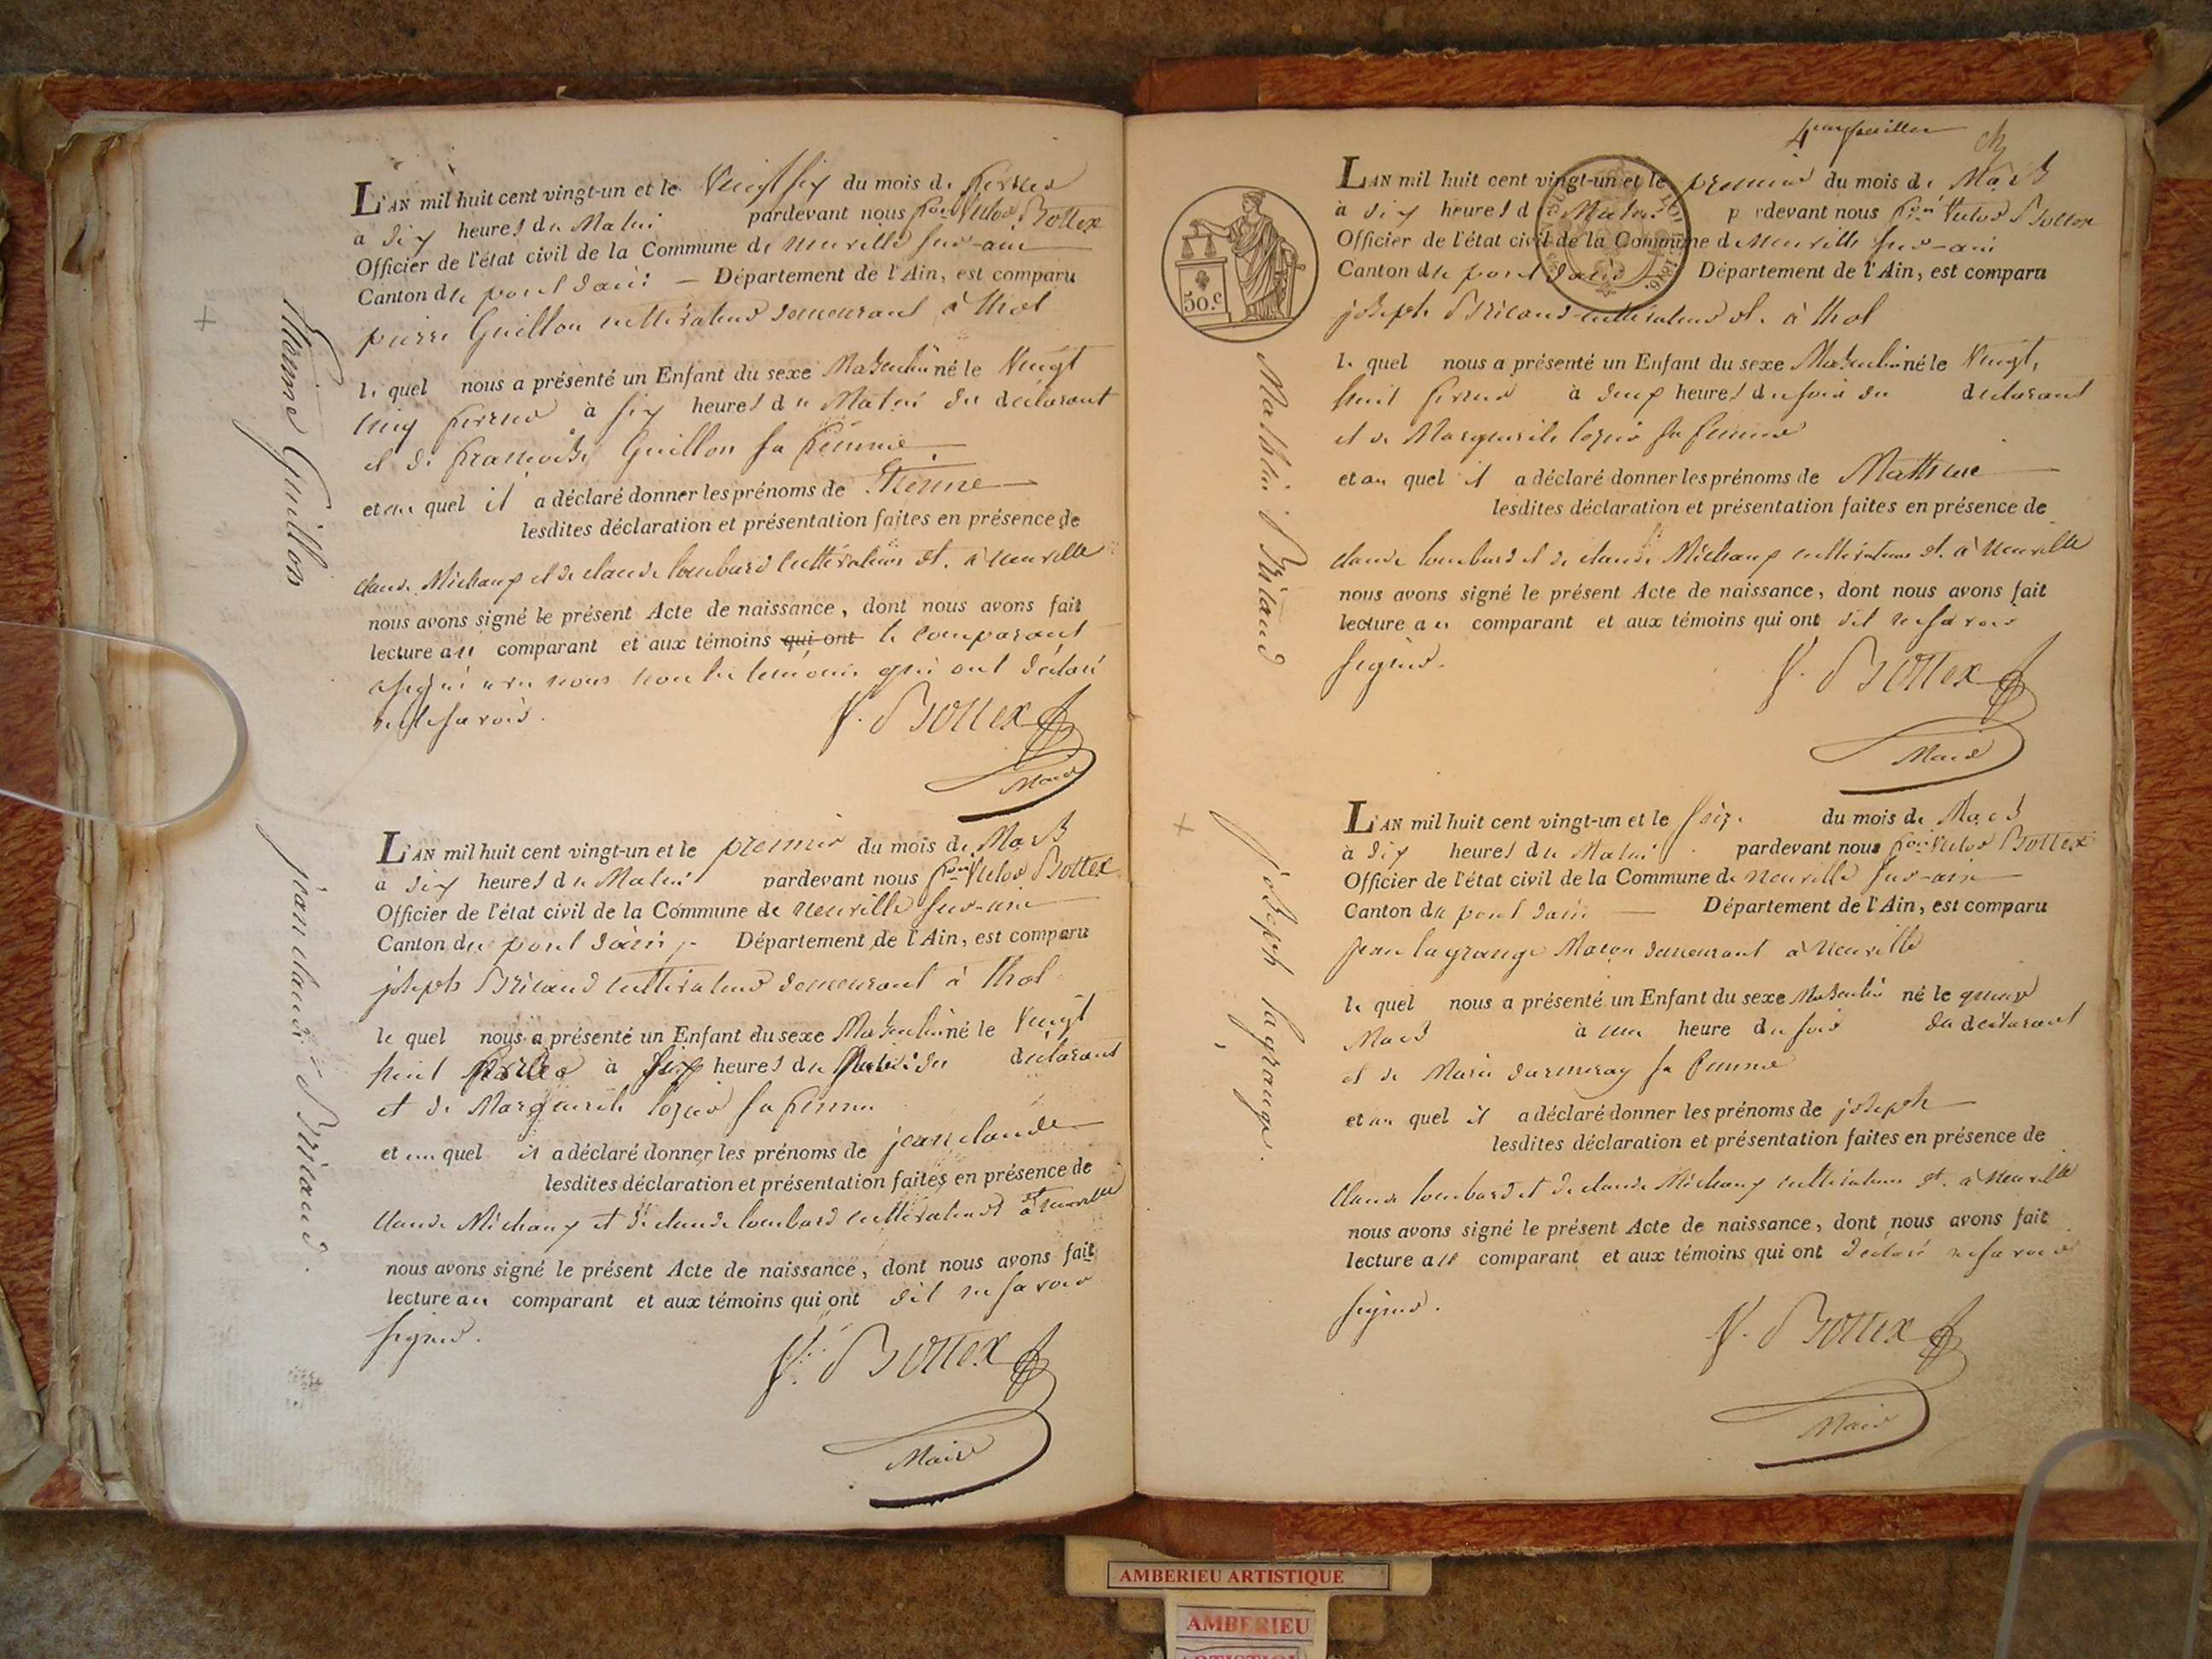 L'AN mil huit cent vingt-un et le Vingt six du mois de fevrier
a dix heures du Matin pardevant nous Victor Bottex
Officier de l'état civil de la Commune de neuville sur-ain
Canton de pont dain — Département de l'Ain, est comparu
pierre Guillon cultivateur demeurant à thol
le quel nous a présenté un Enfant du sexe Masculin né le Vingt
cinq fevrier à six heures du Matin du declarant
et de francoise Guillon sa femme
et au quel il a déclaré donner les prénoms de Etienne
lesdites déclaration et présentation faites en présence de
claude Michaux et de claude lombard cultivateurs dt. à neuville
nous avons signé le présent Acte de naissance, dont nous avons fait
lecture au comparant et aux témoins qui ont le comparant
a signé avec nous non les temoins qui ont déclaré
ne le savoir.
V. Bottex
Maire
Etienne Guillon
L'AN mil huit cent vingt-un et le premier du mois de Mars
a dix heures du Matin pardevant nous Victor Bottex
Officier de l'état civil de la Commune de neuville sur-ain
Canton de pont dain Département de l'Ain, est comparu
joseph Bricaud cultivateur demeurant à thol
le quel nous a présenté un Enfant du sexe Masculin né le Vingt
huit fevrier à heures du du declarant
et de Marguerite sa femme
et au quel il a déclaré donner les prénoms de jean claude
lesdites déclaration et présentation faites en présence de
claude Michaux et de claude lombard cultivateurs dt à neuville
nous avons signé le présent Acte de naissance, dont nous avons fait
lecture au comparant et aux témoins qui ont dit ne savoir
signer.
V. Bottex
Maire
jean claude Bricaud.
4eme feuillet
L'AN mil huit cent vingt-un et le premier du mois de Mars
à dix heures du Matin pardevant nous Victor Bottex
Officier de l'état civil de la Commune de Neuville sur-ain
Canton de pont dain Département de l'Ain, est comparu
joseph Bricaud cultivateur dt. à thol
le quel nous a présenté un Enfant du sexe Masculin né le Vingt,
huit fevrier à deux heures du soir du declarant
et de Marguerite sa femme
et au quel il a déclaré donner les prénoms de Mathieu
lesdites déclaration et présentation faites en présence de
claude lombard et de claude Michaux cultivateurs dt. à Neuville
nous avons signé le présent Acte de naissance, dont nous avons fait
lecture au comparant et aux témoins qui ont dit ne savoir
signer.
V. Bottex
Maire
Mathieu Bricaud
50.c
LOI DE 1816.
L'AN mil huit cent vingt-un et le seize du mois de Mars
à dix heures du Matin pardevant nous Victor Bottex
Officier de l'état civil de la Commune de neuville sur-ain
Canton de pont dain — Département de l'Ain, est comparu
jean lagrange Macon demeurant à Neuville
le quel nous a présenté un Enfant du sexe Masculin né le quinze
Mars à une heure du soir du declarant
et de Marie sa femme
et au quel il a déclaré donner les prénoms de joseph
lesdites déclaration et présentation faites en présence de
claude lombard et de claude Michaux cultivateurs dt. à Neuville
nous avons signé le présent Acte de naissance, dont nous avons fait
lecture au comparant et aux témoins qui ont déclaré ne savoir
signer.
V. Bottex
Maire
joseph lagrange.
AMBERIEU ARTISTIQUE
AMBERIEU
ARTISTIQUE